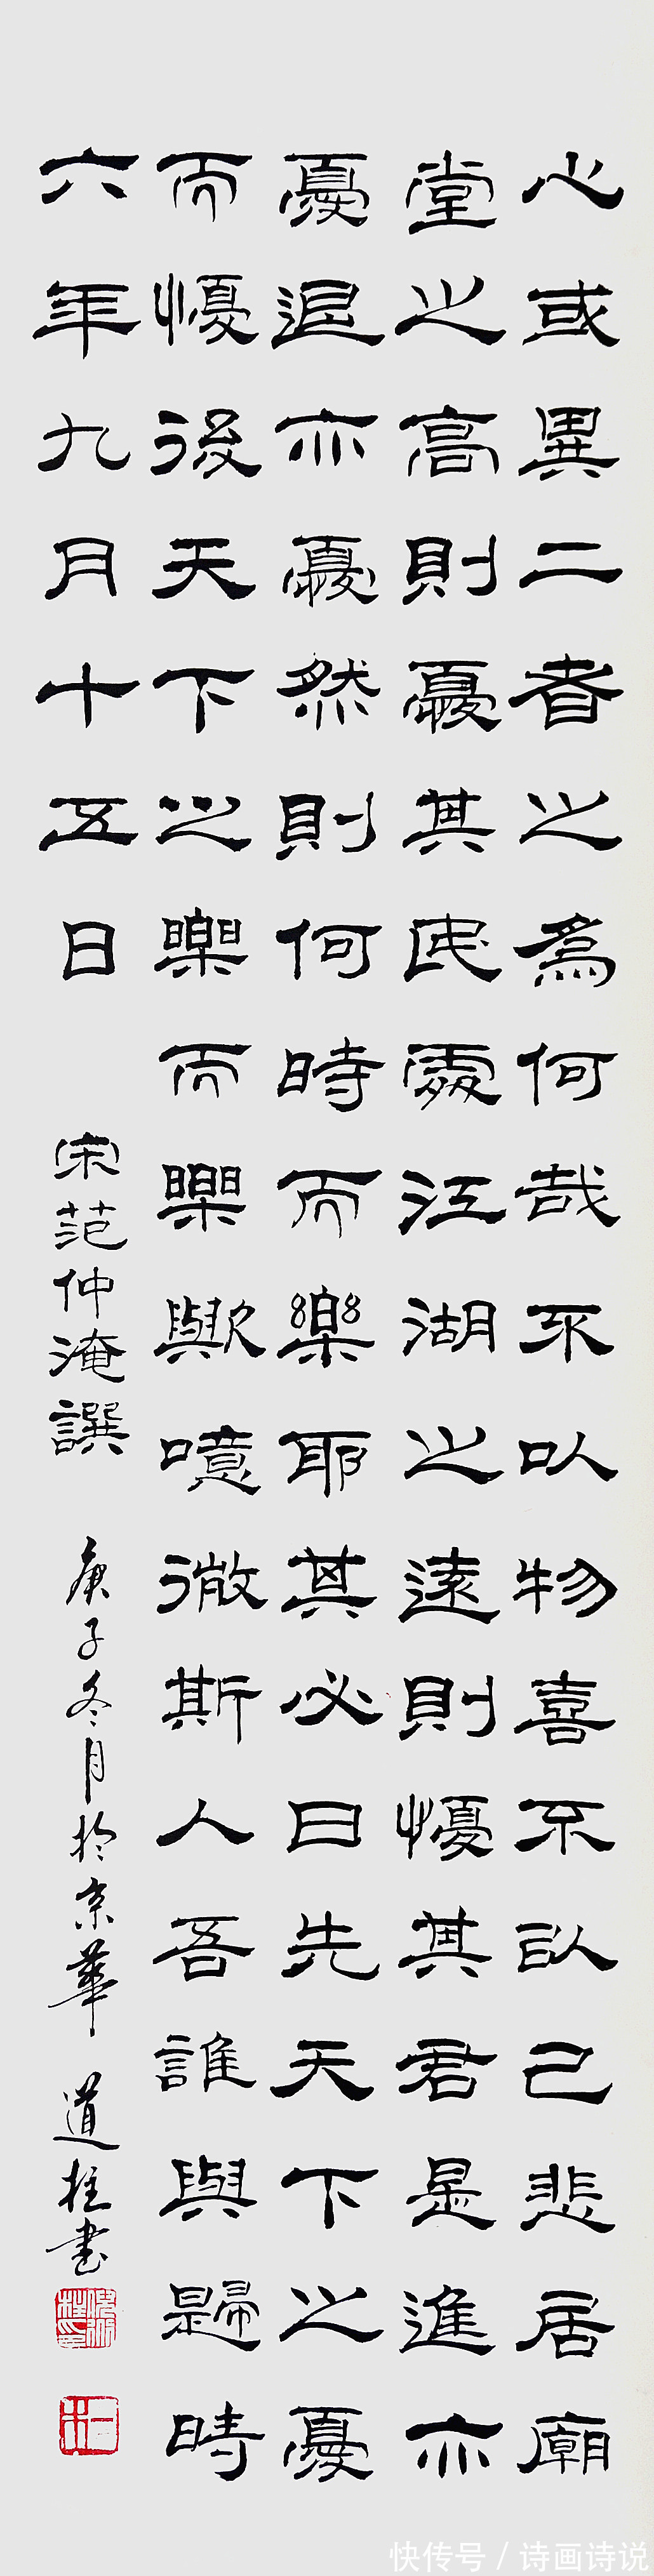 心或異二者之爲何哉不以物喜不以己悲居廟
堂之高則憂其民處江湖之遠則懮其君是進亦
憂退亦憂然則何時而樂耶其必曰先天下之憂
而懮後天下之樂而樂歟噫微斯人吾誰與歸時
六年九月十五日
宋范仲淹譔
庚子冬月於京華 道柱書
快传号 / 诗画诗说